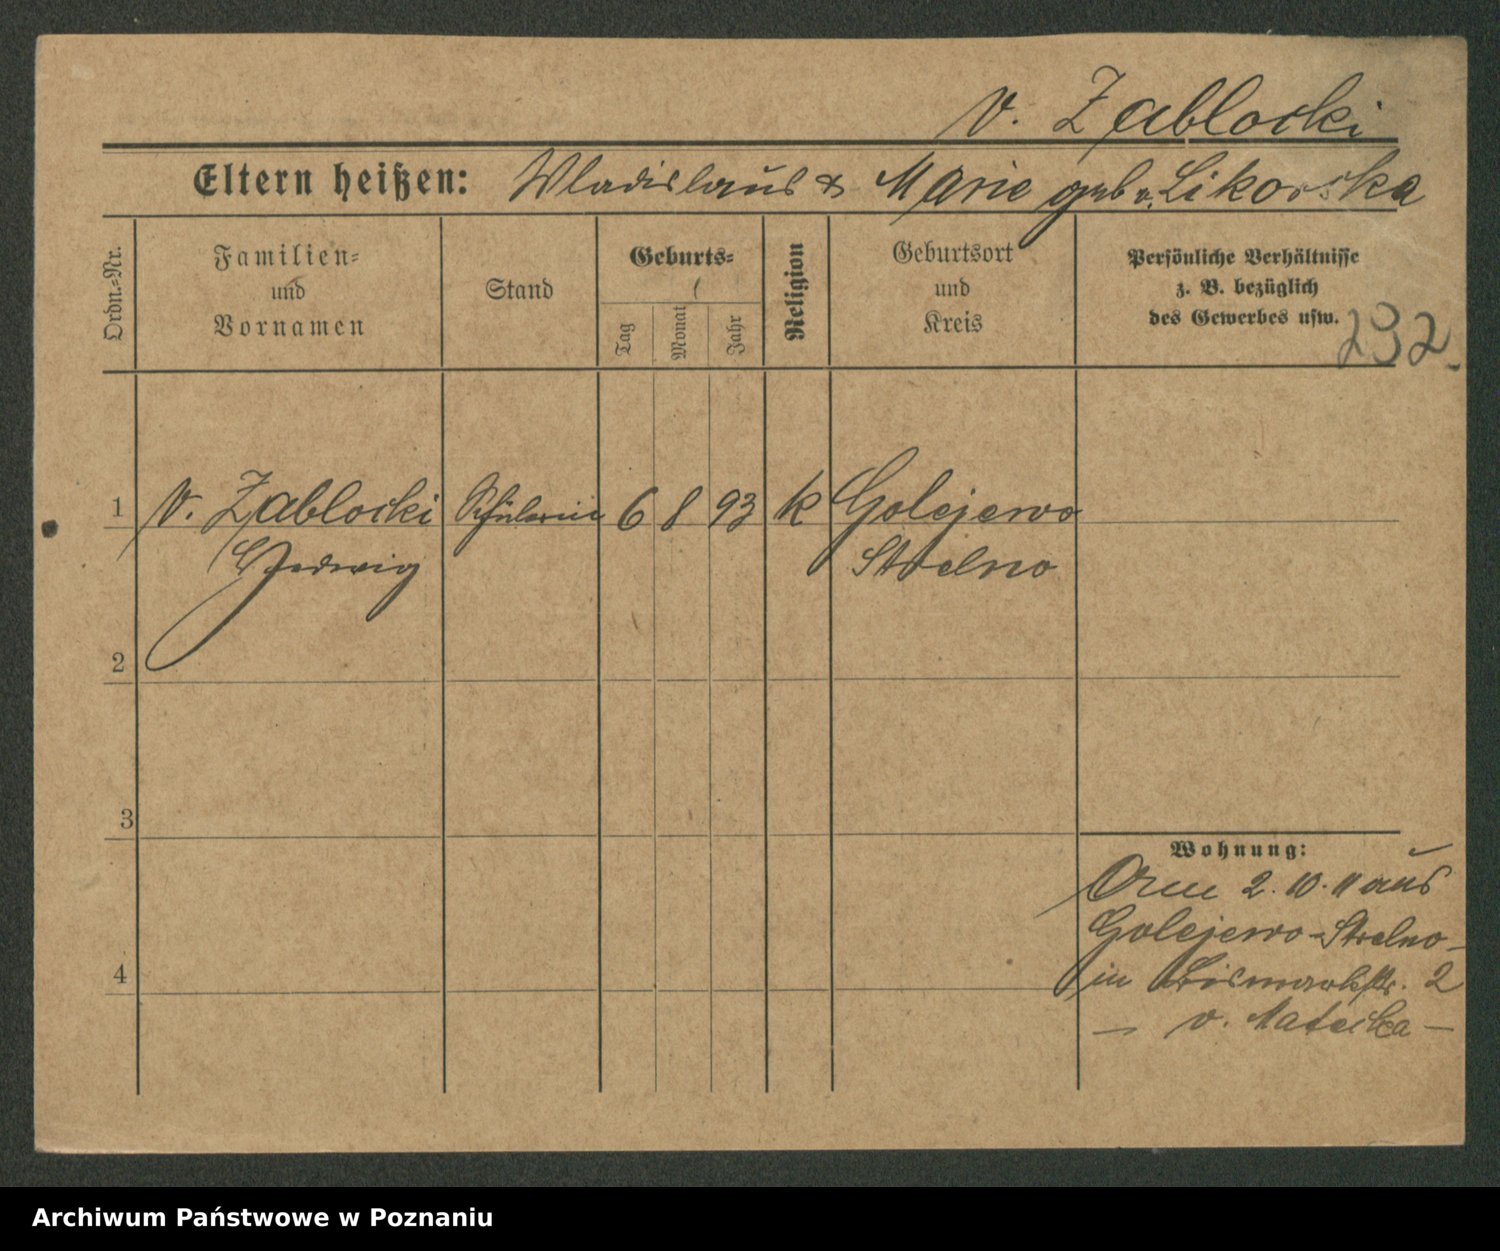 v. Zablocki
Eltern heißen: Wladislaus & Marie geb. v. Likowska
Ordn.-Nr.
Familien-
und
Vornamen
Stand
Geburts-
Tag
Monat
Jahr
Religion
Geburtsort
und
Kreis
Persönliche Verhältnisse
z. B. bezüglich
des Gewerbes usw.
232
1 v. Zablocki Schülerin 6 8 93 k Golejewo
Hedwig Strelno
2
3
4
Wohnung:
Am 2. 10. 11 aus
Golejewo-Strelno
in Bismarckstr. 2
— v. —
Archiwum Państwowe w Poznaniu